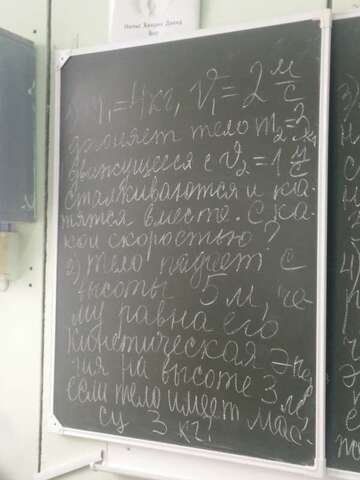 Нильс Хенрик Давид
Бор
1) m₁=4кг, V₁=2 м/с
догоняет тело m₂=2 кг
движущееся с V₂=1 м/с
сталкиваются и ка-
тятся вместе. С ка-
кой скоростью?
2) тело падает с
высоты 5 м, че-
му равна его
кинетическая энер
гия на высоте 3 м,
если тело имеет мас-
су 3 кг?
3)
4)